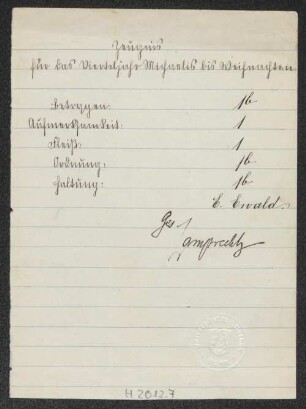 Zeugnis
für das Vierteljahr Michaelis bis Weihnachten
Betragen: 1b
Aufmerksamkeit: 1
Fleiß: 1
Ordnung: 1b
Haltung: 1b
E. Ewald
Ges.
Lamprecht
H 2012.7